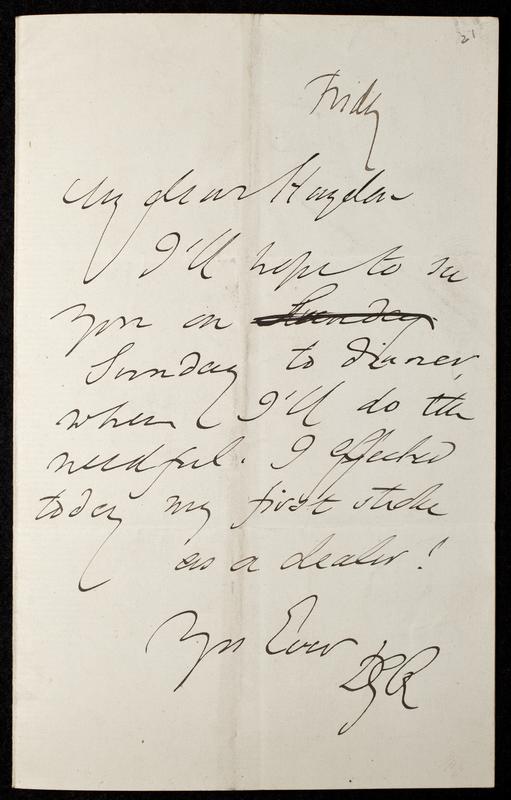 21
Friday
My dear Haydon
I'll hope to see
you on Sunday
Sunday to dinner,
when I'll do the
needful. I effected
today my first stroke
as a dealer!
Yrs Ever
DGR